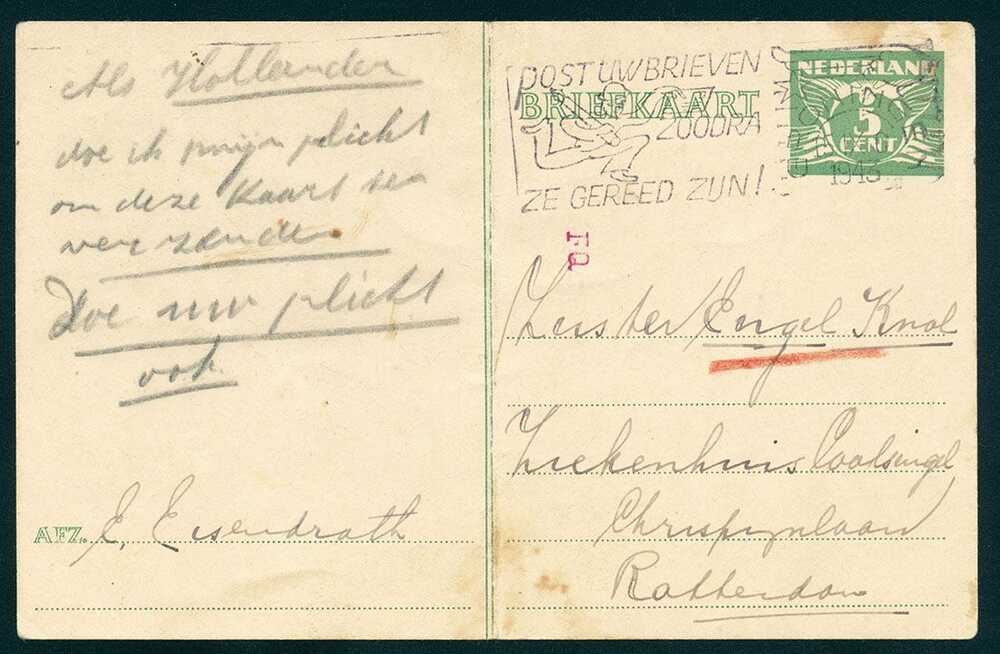 Als Hollander
doe ik mijn plicht
om deze Kaart te
verzenden
Doe uw plicht
ook
AFZ. E, Eisendrath
POST UW BRIEVEN
ZOODRA
ZE GEREED ZIJN!
BRIEFKAART
NEDERLAND
5
CENT
1943
FQ
Zuster Engel Knol
Ziekenhuis Coolsingel
Chrispijnlaan
Rotterdam